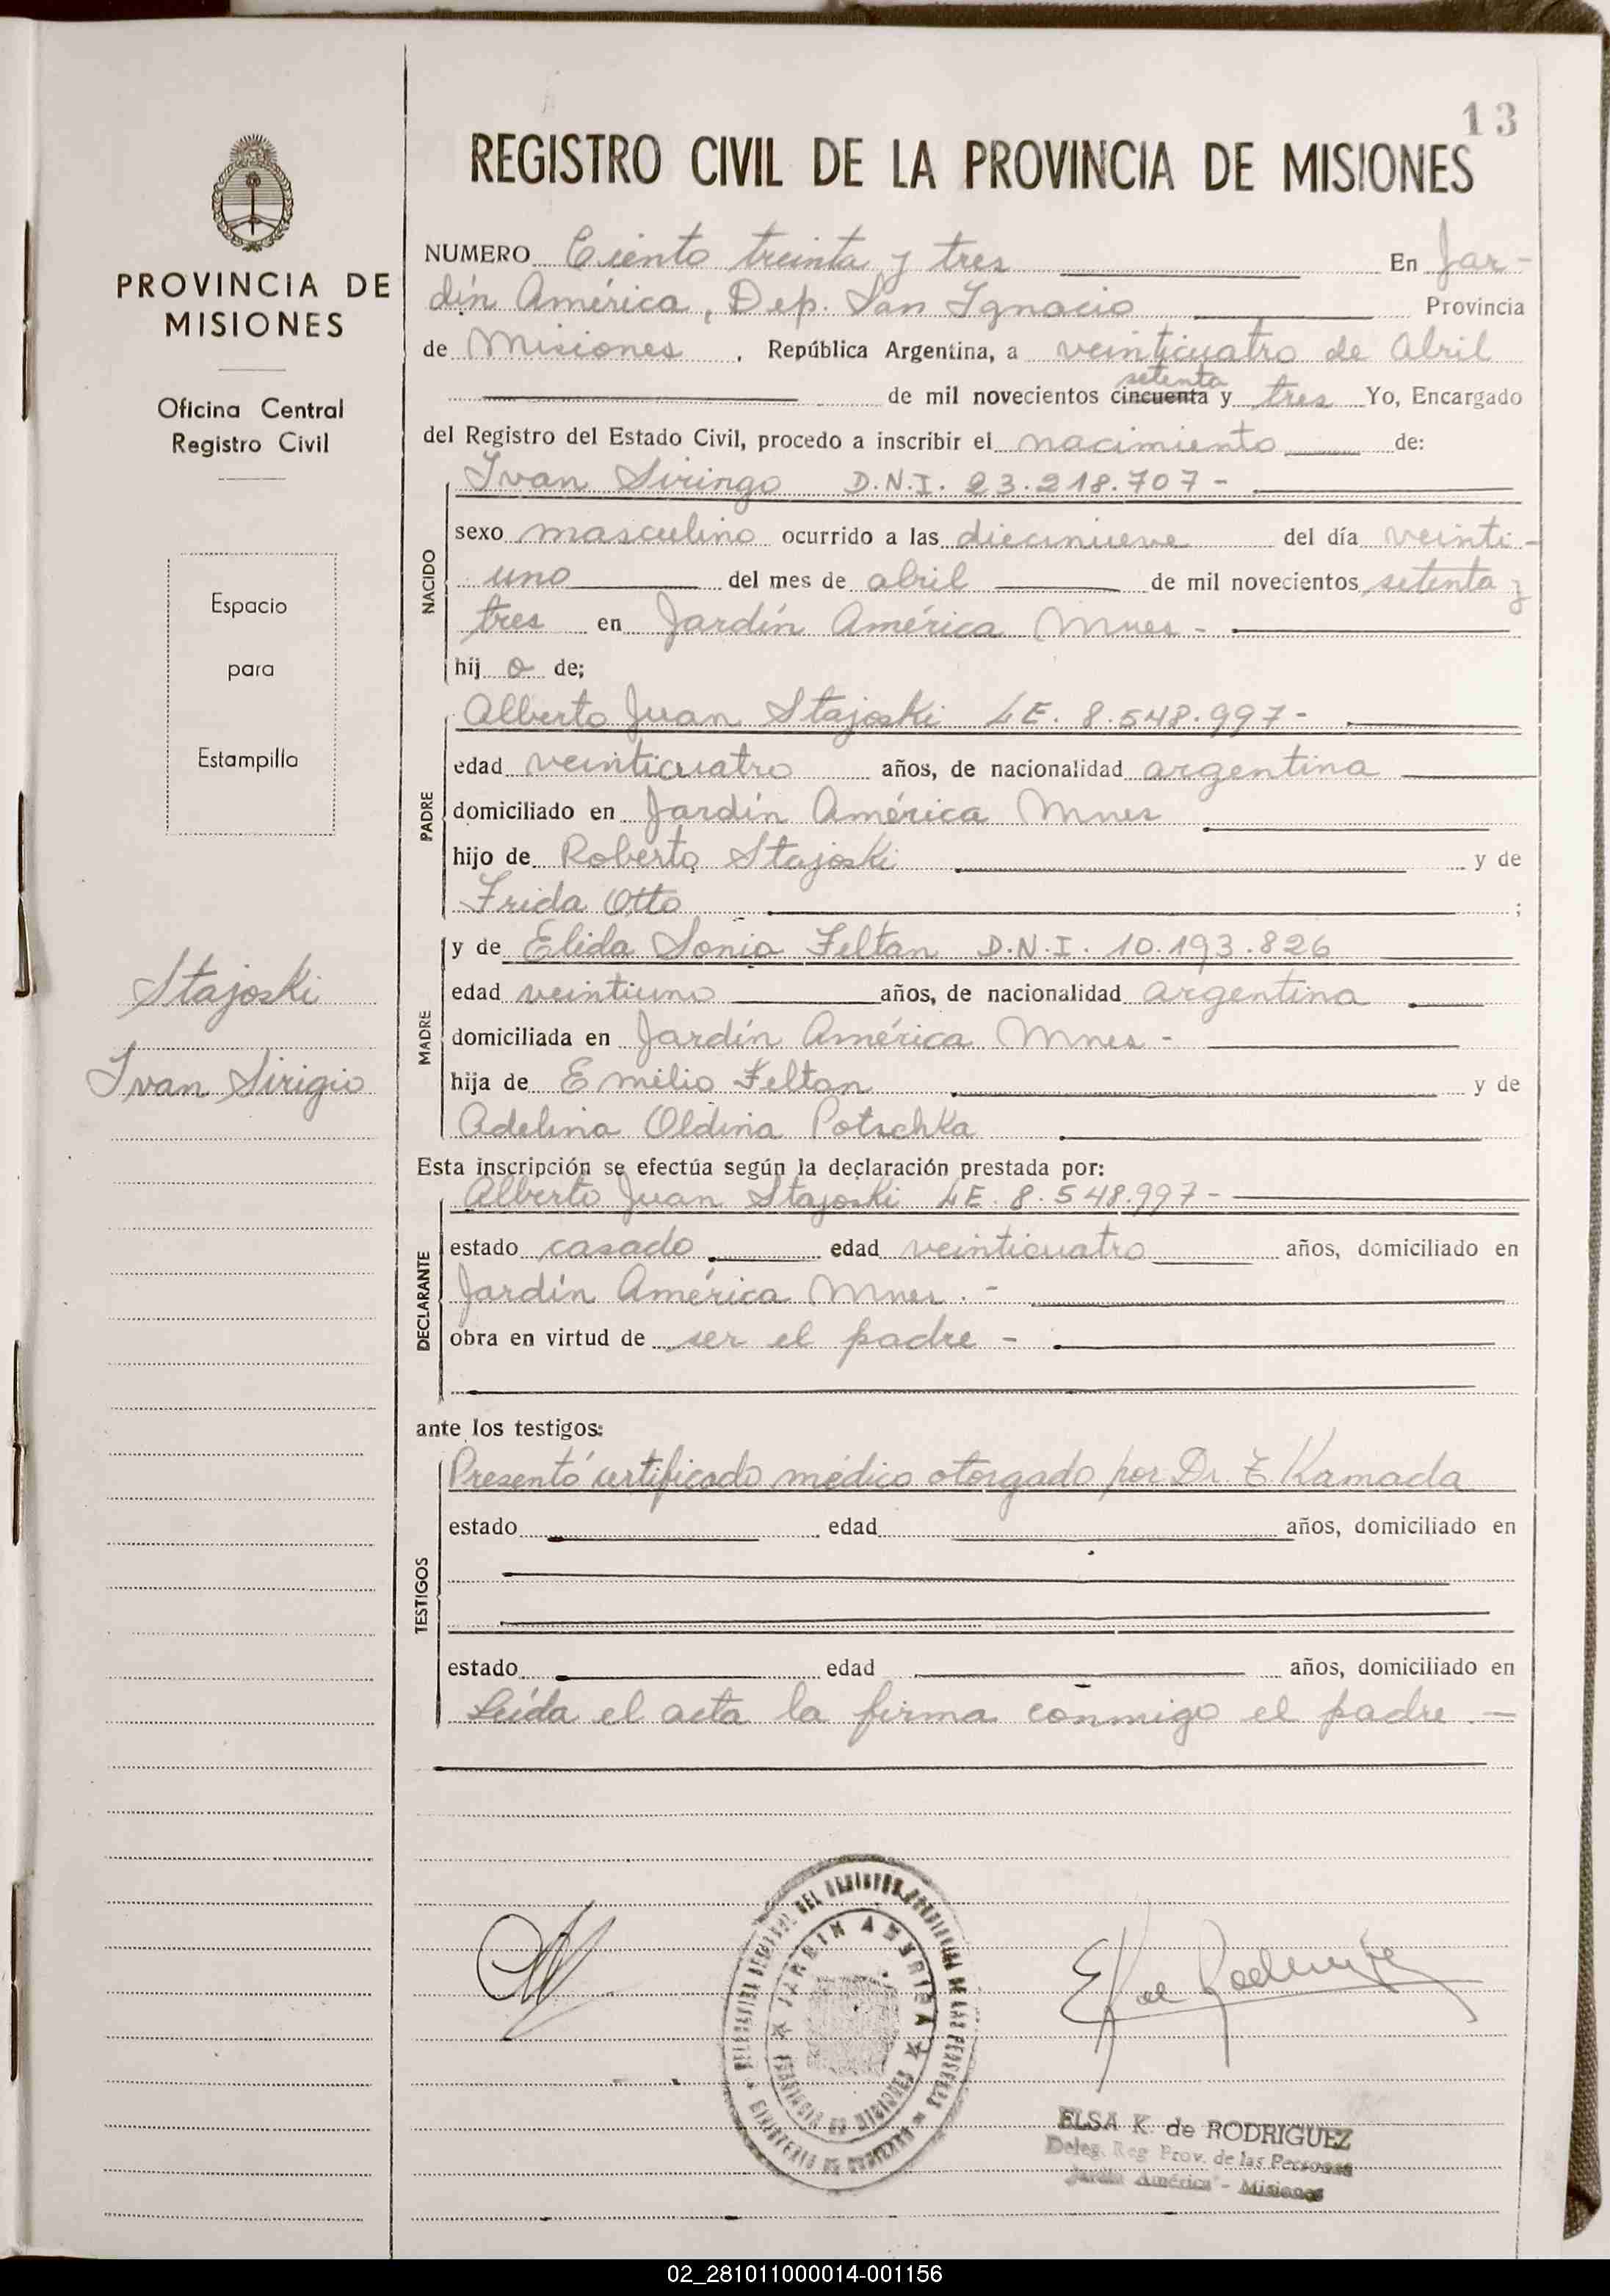 13
REGISTRO CIVIL DE LA PROVINCIA DE MISIONES
PROVINCIA DE
MISIONES
Oficina Central
Registro Civil
Espacio
para
Estampilla
Stajoski
Ivan Sirigio
NUMERO Ciento treinta y tres En Jar-
dín América, Dep. San Ignacio Provincia
de Misiones, República Argentina, a veinticuatro de Abril
setenta
de mil novecientos cincuenta y tres Yo, Encargado
del Registro del Estado Civil, procedo a inscribir el nacimiento de:
Ivan Siringo D.N.I. 23.218.707-
NACIDO
sexo masculino ocurrido a las diecinueve del día veinti-
uno del mes de abril de mil novecientos setenta y
tres en Jardín América Mnes-
hijo de;
Alberto Juan Stajoski LE. 8.548.997-
PADRE
edad veinticuatro años, de nacionalidad argentina
domiciliado en Jardín América Mnes
hijo de Roberto Stajoski y de
Frida Otto ;
y de Elida Sonia Feltan D.N.I. 10.193.826
MADRE
edad veintiuno años, de nacionalidad argentina
domiciliada en Jardín América Mnes-
hija de Emilio Feltan y de
Adelina Oldina Potschka
Esta inscripción se efectúa según la declaración prestada por:
Alberto Juan Stajoski LE. 8.548.997-
DECLARANTE
estado casado edad veinticuatro años, domiciliado en
Jardín América Mnes.-
obra en virtud de ser el padre-
ante los testigos:
Presentó certificado médico otorgado por Dr. E. Kamada
TESTIGOS
estado edad años, domiciliado en
estado edad años, domiciliado en
Leída el acta la firma conmigo el padre.-
JARDIN AMERICA
PROVINCIA DE MISIONES
MINISTERIO DE GOBIERNO
E K de Rodriguez
ELSA K. de RODRIGUEZ
Deleg. Reg. Prov. de las Personas
Jardín América - Misiones
02_281011000014-001156